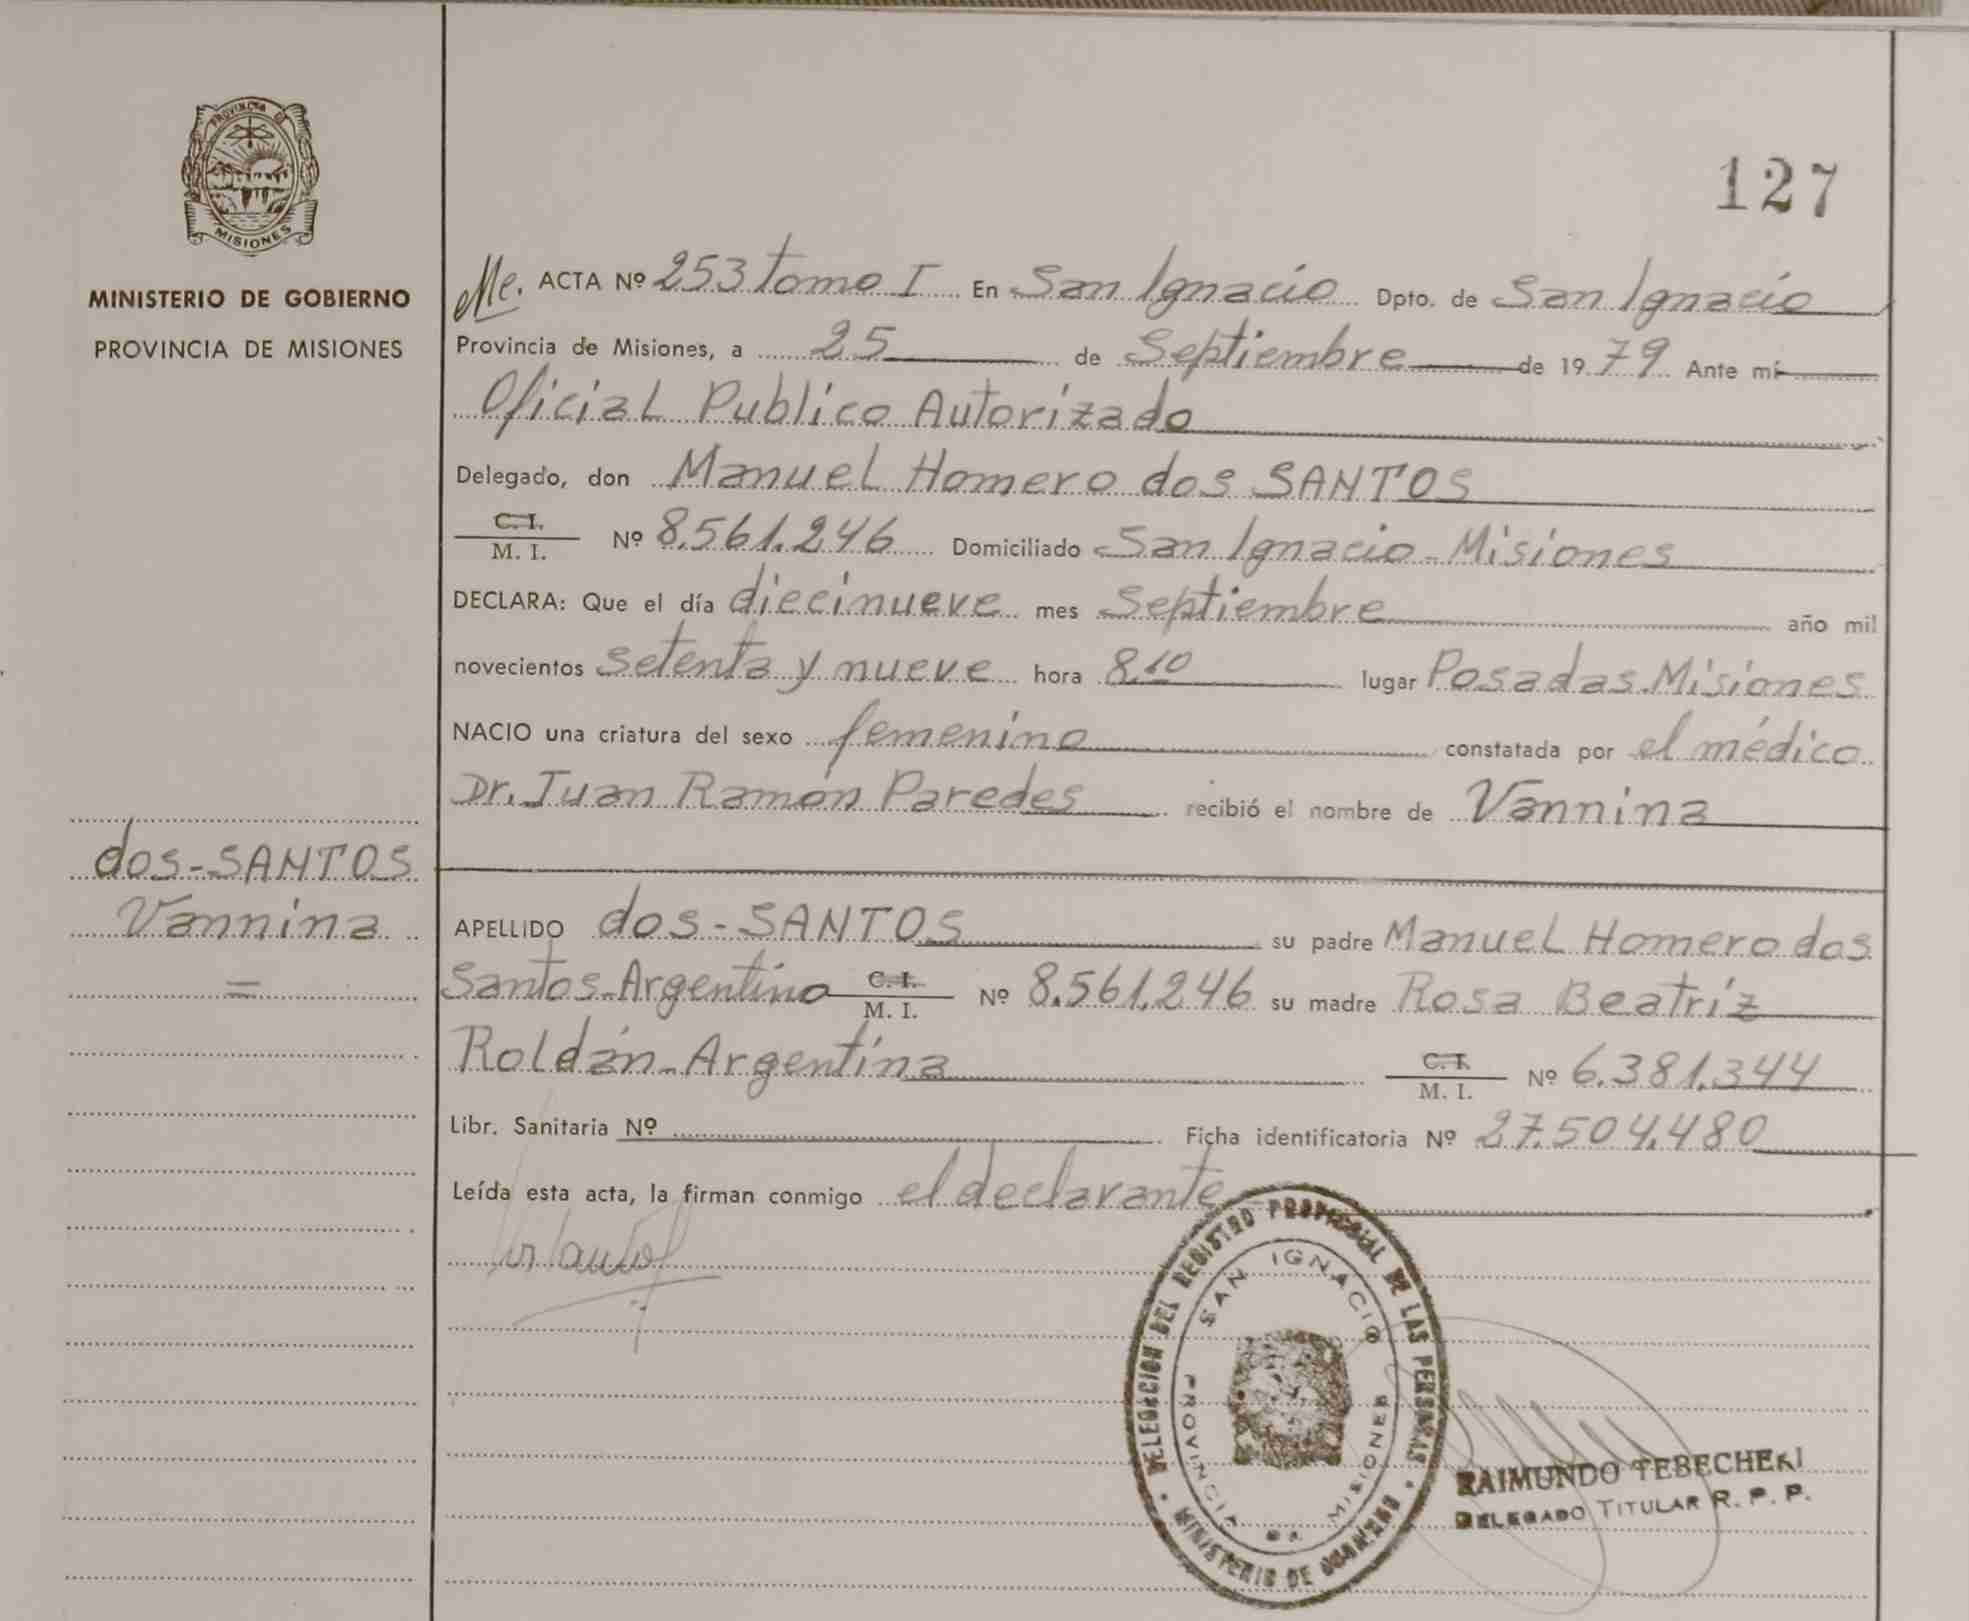 PROVINCIA DE
MISIONES
MINISTERIO DE GOBIERNO
PROVINCIA DE MISIONES
dos-SANTOS
Vannina
=
127
Me. ACTA Nº 253 tomo I En San Ignacio Dpto. de San Ignacio
Provincia de Misiones, a 25 de Septiembre de 1979 Ante mí
Oficial Publico Autorizado
Delegado, don Manuel Homero dos SANTOS
C. I.
M. I. Nº 8.561.246 Domiciliado San Ignacio - Misiones
DECLARA: Que el día diecinueve mes Septiembre año mil
novecientos setenta y nueve hora 8.10 lugar Posadas.Misiones
NACIO una criatura del sexo femenino constatada por el médico
Dr. Juan Ramón Paredes recibió el nombre de Vannina
APELLIDO dos-SANTOS su padre Manuel Homero dos
Santos-Argentino C. I. M. I. Nº 8.561.246 su madre Rosa Beatriz
Roldán-Argentina C. I. M. I. Nº 6.381.344
Libr. Sanitaria Nº Ficha identificatoria Nº 27.504.480
Leída esta acta, la firman conmigo el declarante
DELEGACION DEL REGISTRO PROVINCIAL DE LAS PERSONAS
SAN IGNACIO
PROVINCIA DE MISIONES
MINISTERIO DE GOBIERNO
RAIMUNDO TEBECHERI
DELEGADO TITULAR R. P. P.